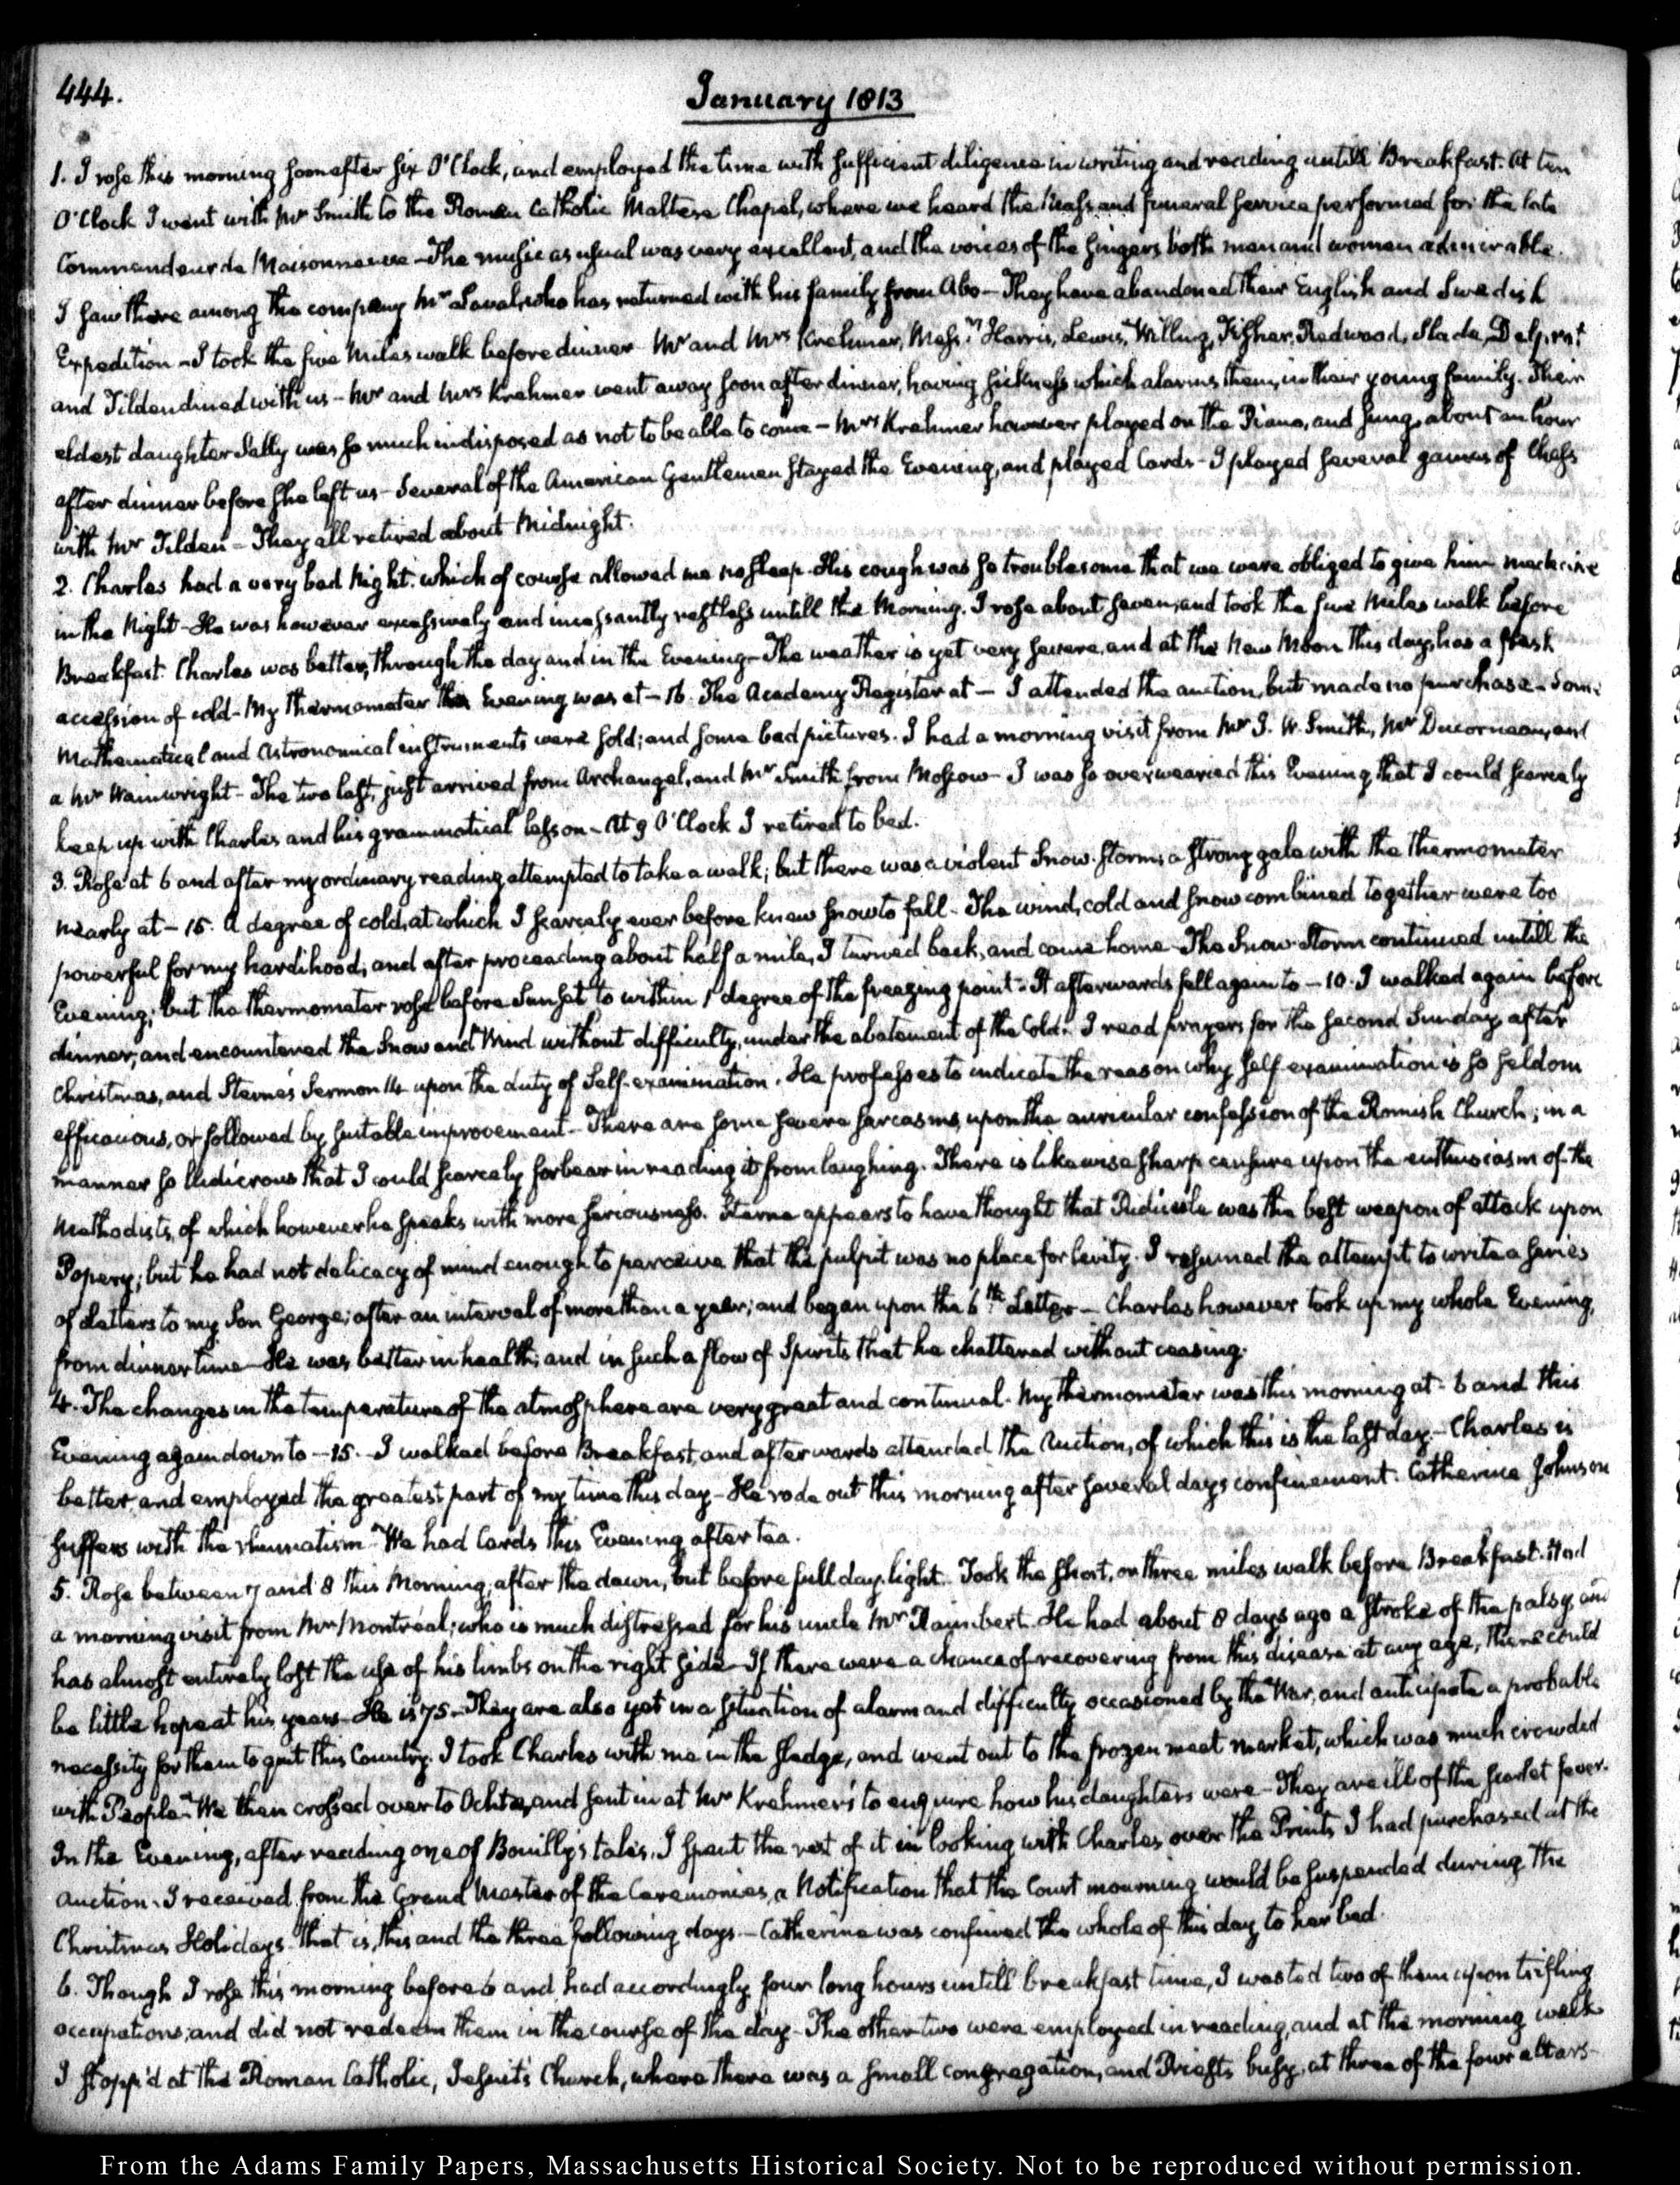 444.
January 1813
1. I rose this morning soon after six O'Clock, and employed the time with sufficient diligence in writing and reading untill Breakfast. At ten
O'Clock I went with Mr Smith to the Roman Catholic Maltese Chapel, where we heard the Mass and funeral service performed for the late
Commandeur de Maisonneuve – The music as usual was very excellent, and the voices of the singers both men and women admirable.
I saw there among the company Mr Laval, who has returned with his family from Abo – They have abandoned their English and Swedish
Expedition – I took the five miles walk before dinner – Mr and Mrs Krehmer, Messrs Harris, Lewis, Willing, Fisher, Redwood, Slade, Delprat
and Tilden dined with us – Mr and Mrs Krehmer went away soon after dinner, having sickness which alarms them, in their young family. Their
eldest daughter Sally was so much indisposed as not to be able to come – Mrs Krehmer however played on the Piano, and sung, about an hour
after dinner before she left us – Several of the American Gentlemen stayed the Evening, and played Cards – I played several games of Chess
with Mr Tilden – They all retired about Midnight.
2. Charles had a very bad Night. which of course allowed me no sleep. His cough was so troublesome that we were obliged to give him medicine
in the Night – He was however excessively and incessantly restless untill the Morning. I rose about seven, and took the five Miles walk before
Breakfast. Charles was better, through the day and in the Evening – The weather is yet very severe, and at the New Moon this day, has a fresh
accession of cold – My Thermometer this Evening was at – 16. The Academy Register at – I attended the auction, but made no purchase – Some
Mathematical and Astronomical instruments were sold; and some bad pictures. I had a morning visit from Mr I. W. Smith, Mr Ducorneau, and
a Mr Wainwright – The two last, just arrived from Archangel, and Mr Smith from Moscow – I was so overwearied this Evening that I could scarcely
keep up with Charles and his grammatical lesson – At 9 O'Clock I retired to bed.
3. Rose at 6 and after my ordinary reading attempted to take a walk; but there was a violent Snow-Storm; a strong gale with the thermometer
nearly at – 15. A degree of cold, at which I scarcely ever before knew snow to fall – The wind, cold and snow combined together were too
powerful for my hardihood; and after proceeding about half a mile, I turned back, and came home – The Snow-Storm continued untill the
Evening; but the thermometer rose before Sunset to within 1 degree of the freezing point – It afterwards fell again to – 10. I walked again before
dinner; and encountered the Snow and Wind without difficulty, under the abatement of the Cold. I read prayers for the second Sunday after
Christmas, and Sterne's Sermon 14 upon the duty of Self-examination. He professes to indicate the reason why self-examination is so seldom
efficacious, or followed by suitable improvement – There are some severe sarcasms, upon the auricular confession of the Romish Church; in a
manner so ludicrous that I could scarcely forbear in reading it from laughing. There is likewise sharp censure upon the enthusiasm of the
Methodists, of which however he speaks with more seriousness. Sterne appears to have thought that Ridicule was the best weapon of attack upon
Popery; but he had not delicacy of mind enough to perceive that the pulpit was no place for levity. I resumed the attempt to write a series
of Letters to my Son George; after an interval of more than a year; and began upon the 6th Letter – Charles however took up my whole Evening,
from dinner time – He was better in health; and in such a flow of Spirits that he chattered without ceasing.
4. The changes in the temperature of the atmosphere are very great and continual. My thermometer was this morning at – 6 and this
Evening again down to – 15. I walked before Breakfast, and afterwards attended the Auction, of which this is the last day – Charles is
better and employed the greatest part of my time this day – He rode out this morning after several days confinement. Catherine Johnson
suffers with the rheumatism – We had Cards this Evening after tea.
5. Rose between 7 and 8 this Morning, after the dawn, but before full day-light. Took the short, or three miles walk before Breakfast. Had
a morning visit from Mr Montréal; who is much distressed for his uncle Mr Raimbert. He had about 8 days ago a stroke of the palsy, and
has almost entirely lost the use of his limbs on the right side – If there were a chance of recovering from this disease at any age, there could
be little hope at his years – He is 75 – They are also yet in a situation of alarm and difficulty occasioned by the War; and anticipate a probable
necessity for them to quit this Country. I took Charles with me in the sledge, and went out to the frozen meat market, which was much crowded
with People – We then crossed over to Ochta, and sent in at Mr Krehmer's to enquire how his daughters were – They are ill of the scarlet fever.
In the Evening, after reading one of Bouilly's tales, I spent the rest of it in looking with Charles over the Prints I had purchased at the
auction. I received from the Grand Master of the Ceremonies, a Notification that the Court mourning would be suspended during the
Christmas Holidays, that is, this and the three following days. – Catherine was confined the whole of this day to her bed.
6. Though I rose this morning before 6 and had accordingly four long hours untill breakfast time, I wasted two of them upon trifling
occupations; and did not redeem them in the course of the day – The other two were employed in reading, and at the morning walk
I stopp'd at the Roman Catholic, Jesuits Church, where there was a small congregation, and Priests busy, at three of the four altars –
From the Adams Family Papers, Massachusetts Historical Society. Not to be reproduced without permission.